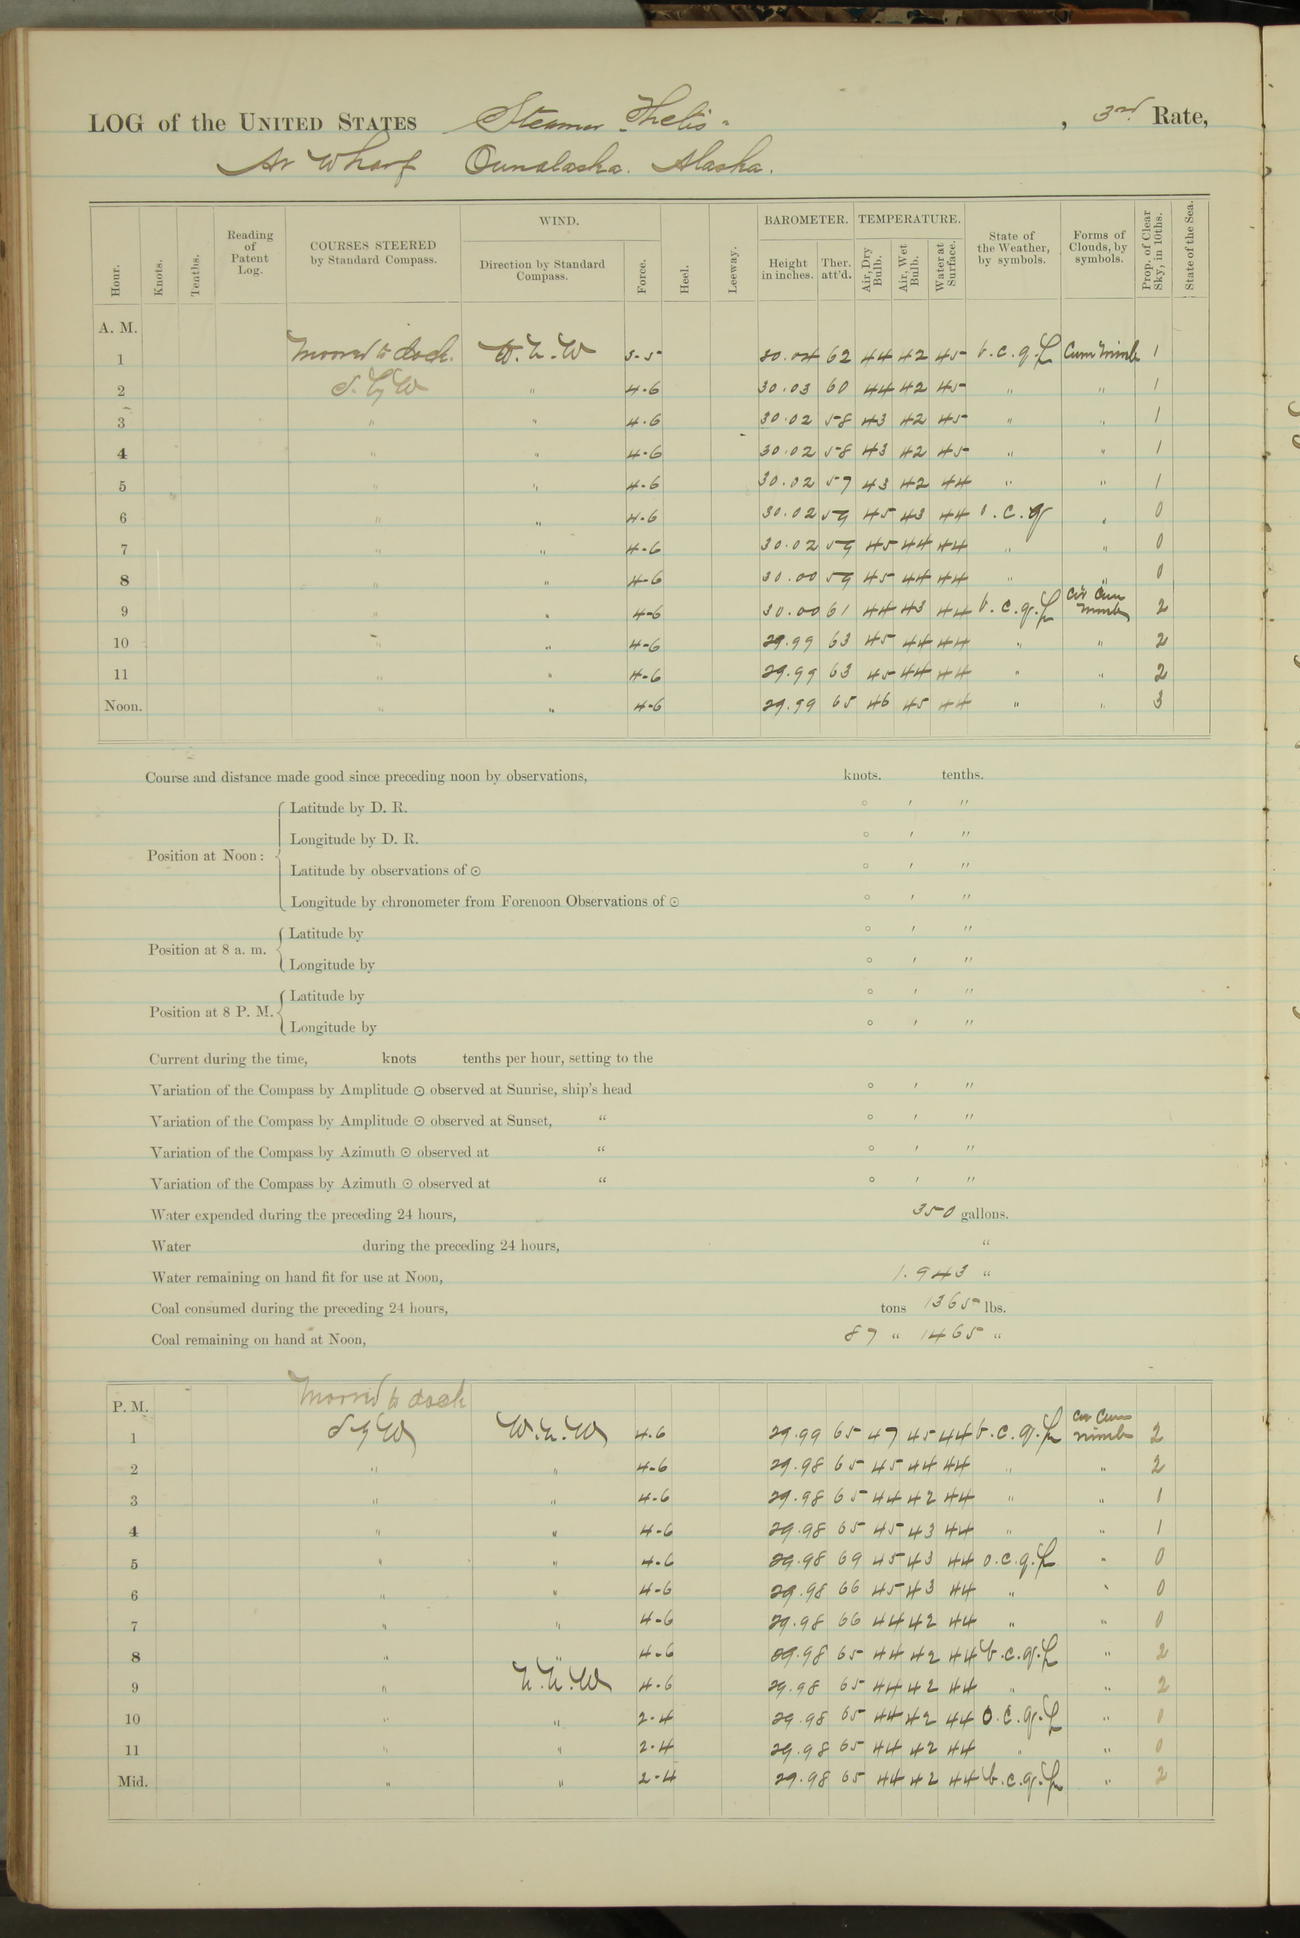 LOG of the UNITED STATES Steamer "Thetis" , 3rd Rate,
At Wharf Ounalaska. Alaska.
Hour. Knots. Tenths. Reading of Patent Log. COURSES STEERED by Standard Compass. WIND. Direction by Standard Compass. Force. Heel. Leeway. BAROMETER. Height in inches. Ther. att'd. TEMPERATURE. Air, Dry Bulb. Air, Wet Bulb. Water at Surface. State of the Weather, by symbols. Forms of Clouds, by symbols. Prop. of Clear Sky, in 10ths. State of the Sea.
A. M.
1 Moored to dock. W. N. W 5-5 30.04 62 44 42 45 b.c.q. Cum Nimb 1
2 S. by W " 4-6 30.03 60 44 42 45 " " 1
3 " " 4-6 30.02 58 43 42 45 " " 1
4 " " 4-6 30.02 58 43 42 45 " " 1
5 " " 4-6 30.02 57 43 42 44 " " 1
6 " " 4-6 30.02 59 45 43 44 o.c.q " 0
7 " " 4-6 30.02 59 45 44 44 " " 0
8 " " 4-6 30.00 59 45 44 44 " " 0
9 " " 4-6 30.00 61 44 43 44 b.c.q. Cir Cum Nimb 2
10 " " 4-6 29.99 63 45 44 44 " " 2
11 " " 4-6 29.99 63 45 44 44 " " 2
Noon. " " 4-6 29.99 65 46 45 44 " " 3
Course and distance made good since preceding noon by observations, knots. tenths.
Position at Noon: Latitude by D. R. ° ′ ″
Longitude by D. R. ° ′ ″
Latitude by observations of ⊙ ° ′ ″
Longitude by chronometer from Forenoon Observations of ⊙ ° ′ ″
Position at 8 a. m. Latitude by ° ′ ″
Longitude by ° ′ ″
Position at 8 P. M. Latitude by ° ′ ″
Longitude by ° ′ ″
Current during the time, knots tenths per hour, setting to the
Variation of the Compass by Amplitude ⊙ observed at Sunrise, ship's head ° ′ ″
Variation of the Compass by Amplitude ⊙ observed at Sunset, “ ° ′ ″
Variation of the Compass by Azimuth ⊙ observed at “ ° ′ ″
Variation of the Compass by Azimuth ⊙ observed at “ ° ′ ″
Water expended during the preceding 24 hours, 350 gallons.
Water during the preceding 24 hours, “
Water remaining on hand fit for use at Noon, 1.943 “
Coal consumed during the preceding 24 hours, tons 1365 lbs.
Coal remaining on hand at Noon, 87 “ 1465 “
P. M. Moored to dock
1 S by W W. N. W 4-6 29.99 65 47 45 44 b.c.q. Cir Cum Nimb 2
2 " " 4-6 29.98 65 45 44 44 " " 2
3 " " 4-6 29.98 65 44 42 44 " " 1
4 " " 4-6 29.98 65 45 43 44 " " 1
5 " " 4-6 29.98 69 45 43 44 o.c.q. " 0
6 " " 4-6 29.98 66 45 43 44 " " 0
7 " " 4-6 29.98 66 44 42 44 " " 0
8 " " 4-6 29.98 65 44 42 44 b.c.q. " 2
9 " N. N. W 4-6 29.98 65 44 42 44 " " 2
10 " " 2-4 29.98 65 44 42 44 o.c.q. " 0
11 " " 2-4 29.98 65 44 42 44 " " 0
Mid. " " 2-4 29.98 65 44 42 44 b.c.q. " 2